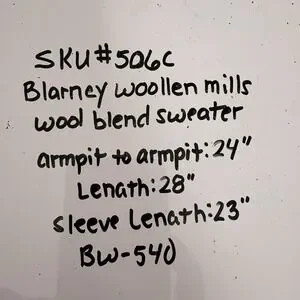 SKU#506C
Blarney woollen mills
wool blend sweater
armpit to armpit:24"
Lenath:28"
sleeve Lenath:23"
BW-540